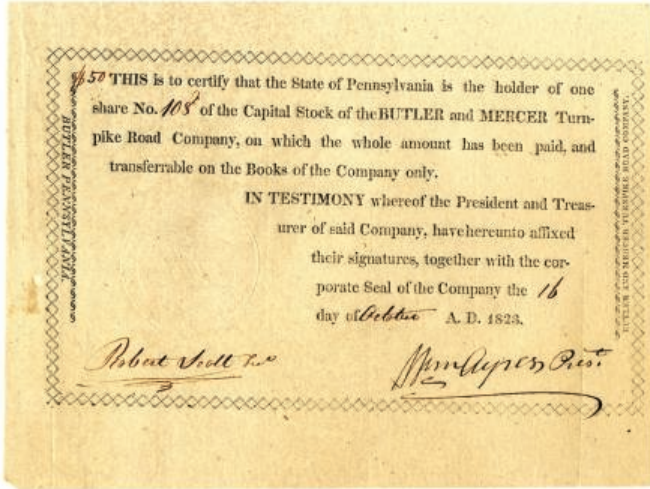 $50 THIS is to certify that the State of Pennsylvania is the holder of one
share No. 108 of the Capital Stock of the BUTLER and MERCER Turn-
pike Road Company, on which the whole amount has been paid, and
transferrable on the Books of the Company only.
IN TESTIMONY whereof the President and Treas-
urer of said Company, have hereunto affixed
their signatures, together with the cor-
porate Seal of the Company the 16
day of October A. D. 1823.
Robert Scott
Wm Ayres Prest.
BUTLER PENNSYLVANIA.
BUTLER AND MERCER TURNPIKE ROAD COMPANY.